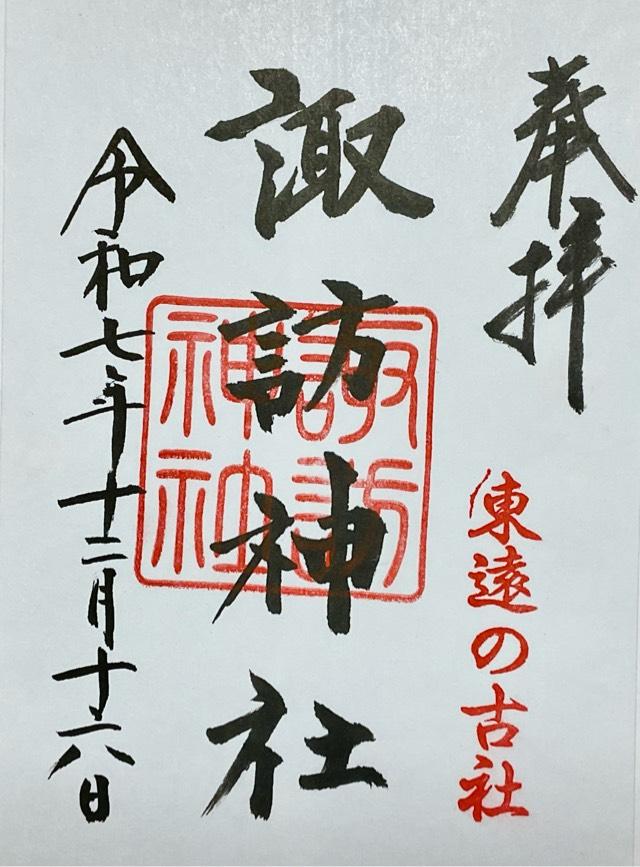 奉拝
東遠の古社
諏訪神社
諏訪神社
令和七年十二月十六日